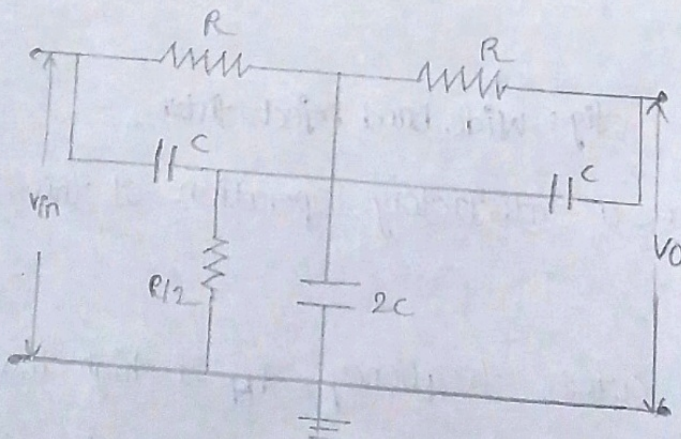 R
R
C
C
Vin
R/2
2C
VO